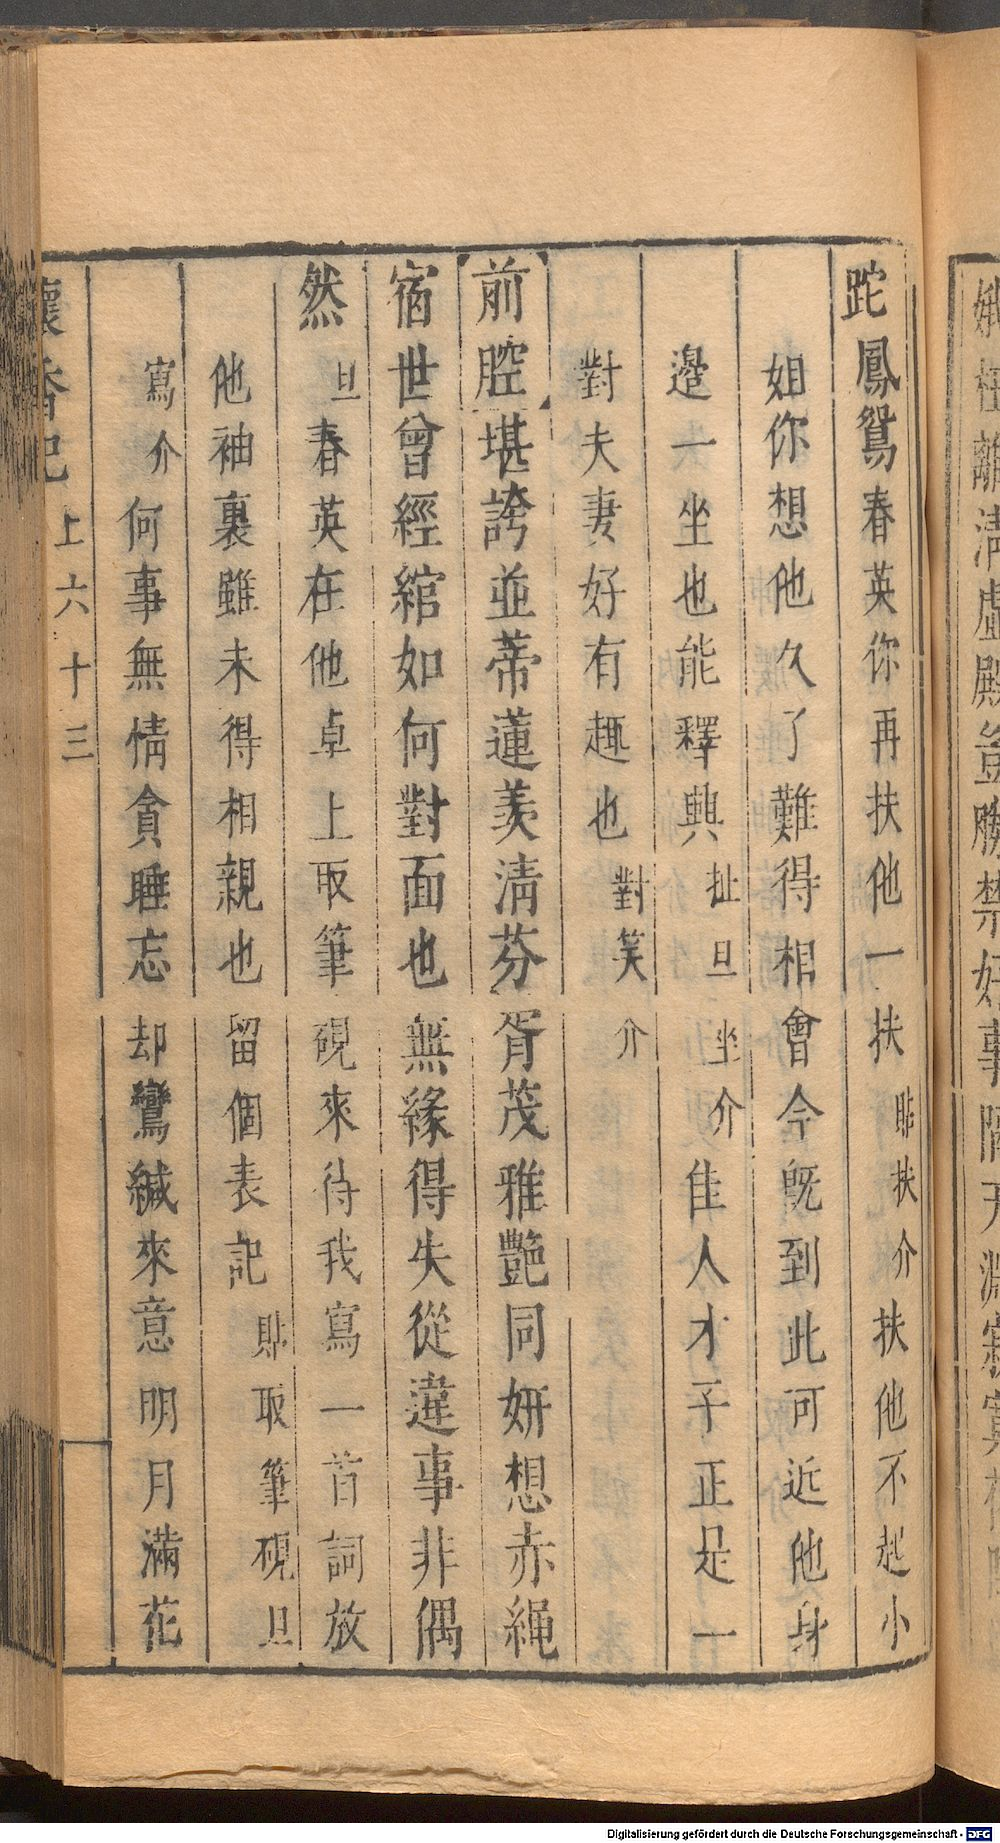 娥枉離清虛殿豈勝禁好事隔天淵寂寞
跎鳳鴛春英你再扶他一扶貼扶介扶他不起小
姐你想他久了難得相會今旣到此可近他身
邊一坐也能釋興扯旦坐介佳人才子正是一
對夫妻好有趣也對笑介
前腔堪誇並蒂蓮羡清芬胥茂雅艷同姸想赤繩
宿世曾經綰如何對面也無緣得失從違事非偶
然旦春英在他卓上取筆硯來待我寫一首詞放
他袖裏雖未得相親也留個表記貼取筆硯旦
寫介何事無情貪睡忘却鸞緘來意明月滿花
懷香記 上六十三
Digitalisierung gefördert durch die Deutsche Forschungsgemeinschaft - DFG